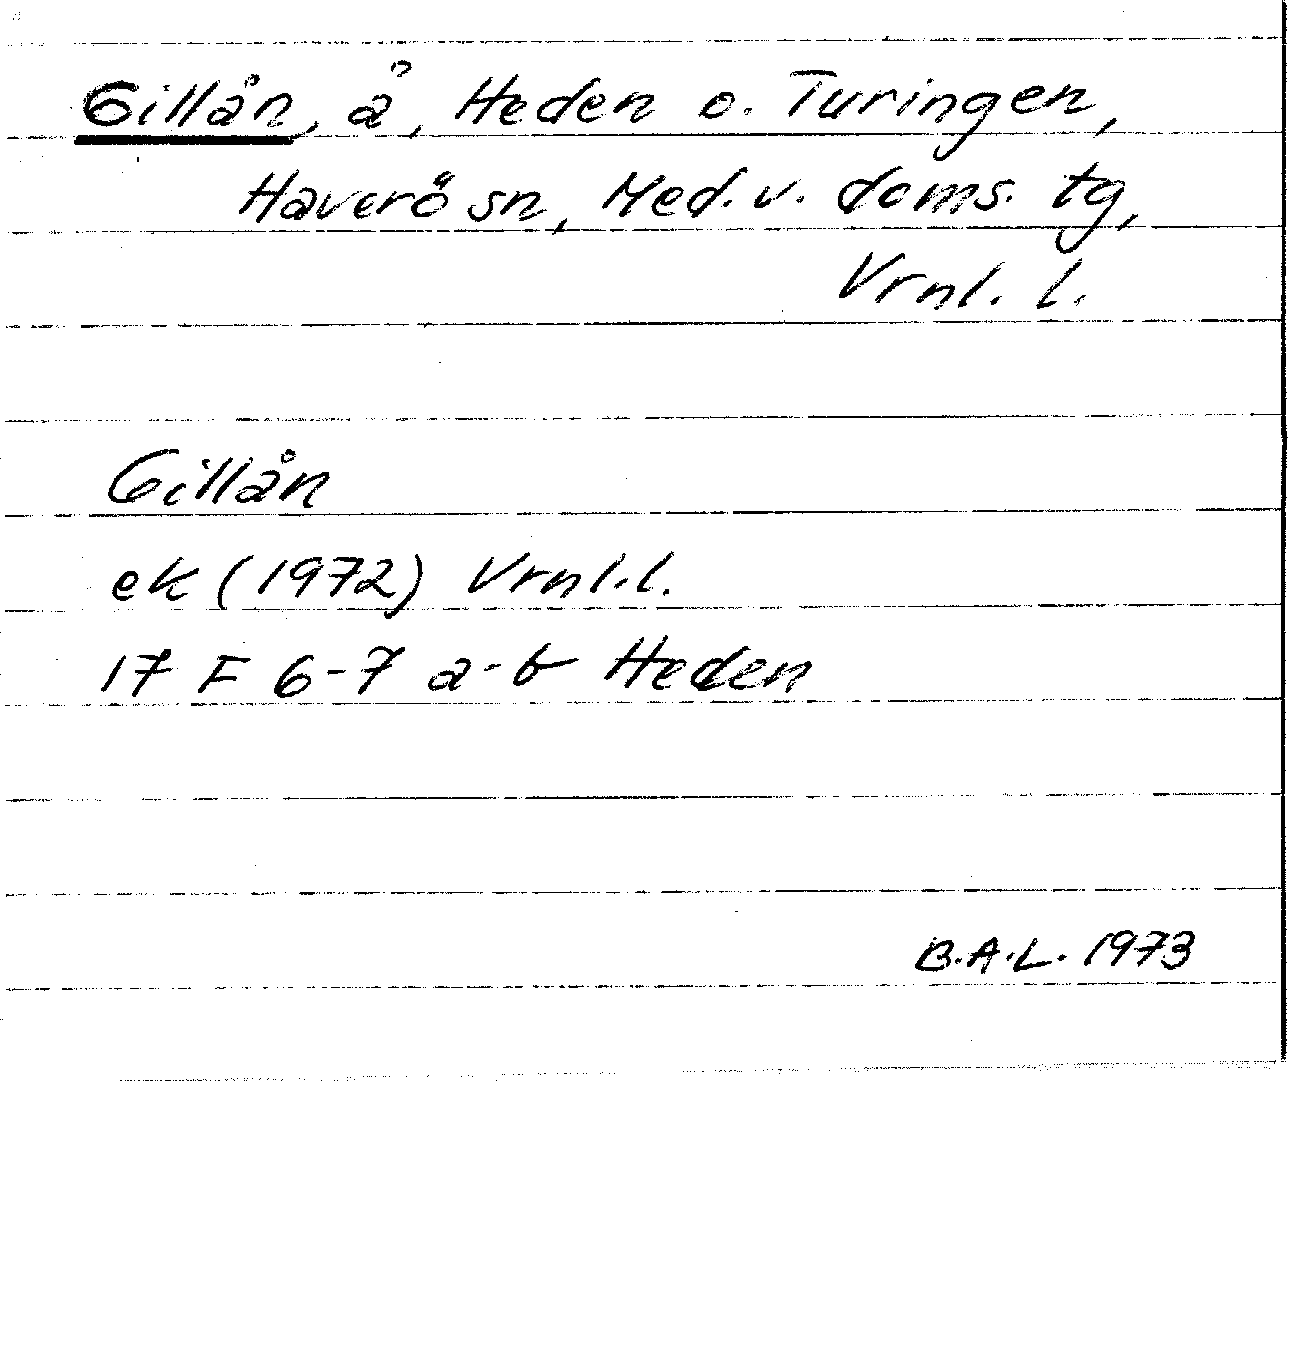 Gillån, å, Heden o. Turingen,
Haverö sn, Med. v. doms. tg,
Vrnl. l.
Gillån
ek (1972) Vrnl. l.
17 F 6-7 a-b Heden
B.A.L. 1973